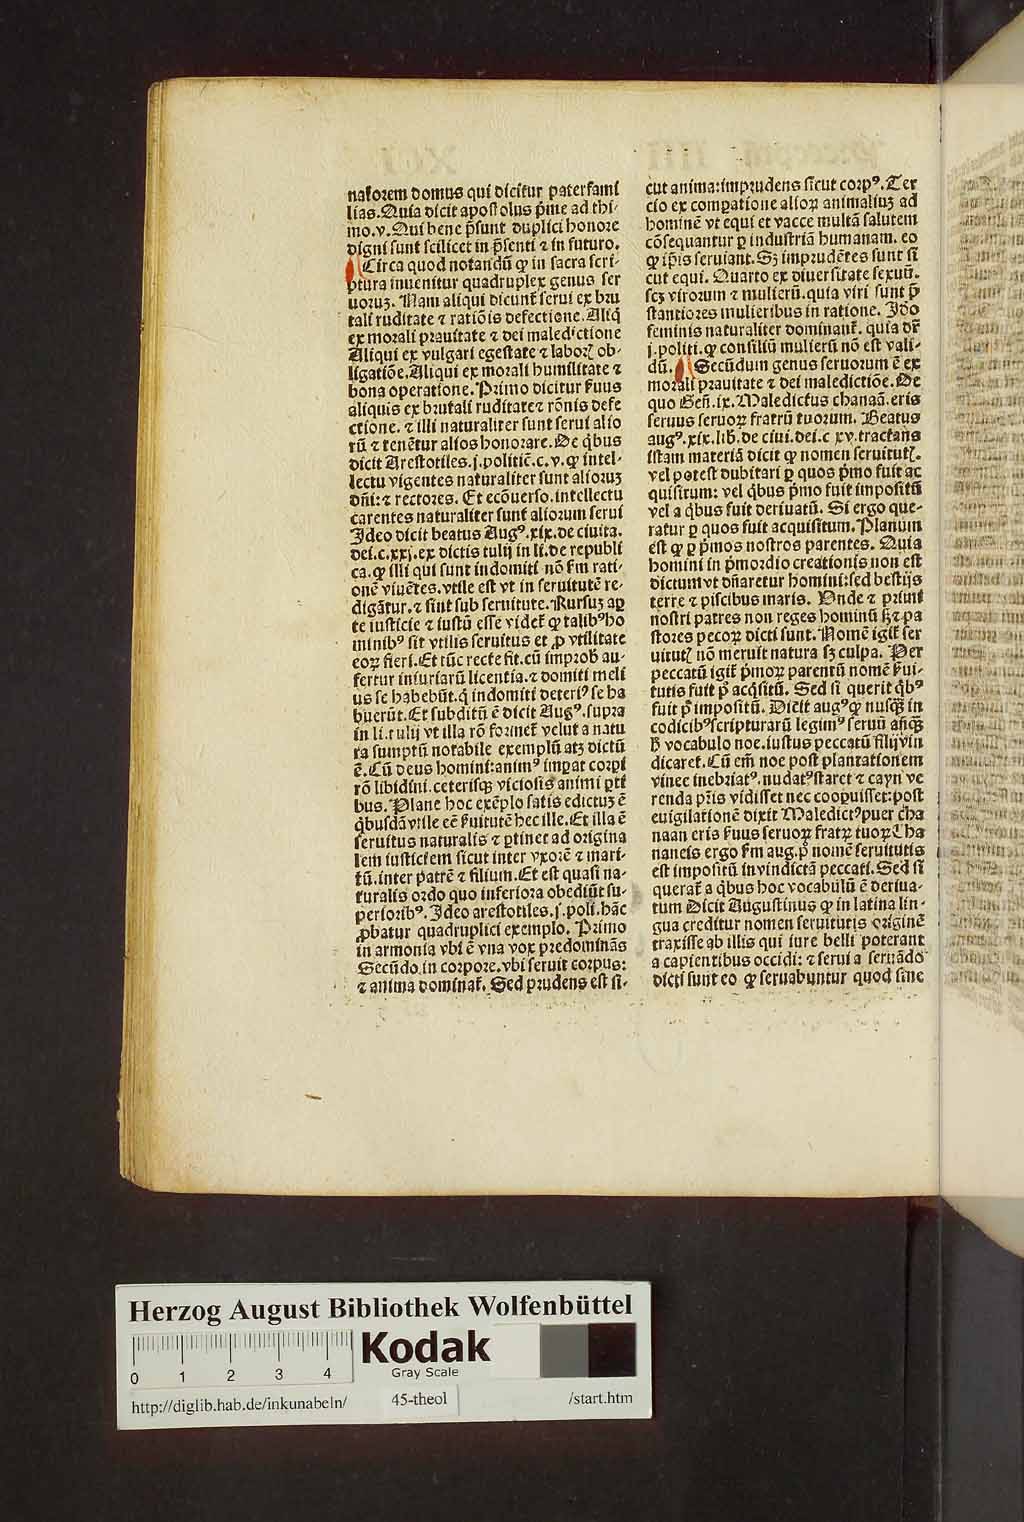 natorem domus qui dicitur paterfami
lias. Quia dicit apostolus p̄me ad thi-
mo. v. Qui bene p̄sunt duplici honore
digni sunt scilicet in p̄senti ⁊ in futuro.
Circa quod notandū ꝙ in sacra scri-
ptura inuenitur quadruplex genus ser
uoruꝫ. Nam aliqui dicunt᷑ serui ex bru
tali ruditate ⁊ ratiōis defectione. Aliq̄
ex morali prauitate ⁊ dei maledictione
Aliqui ex vulgari egestate ⁊ laboꝝ ob-
ligatiōe. Aliqui ex morali humilitate ⁊
bona operatione. Primo dicitur ẜuus
aliquis ex brutali ruditate ⁊ rōnis defe
ctione. ⁊ illi naturaliter sunt serui alio
rū ⁊ tenētur alios honorare. De qͥbus
dicit Arestotiles. j. politic̄. c. v. ꝙ intel-
lectu vigentes naturaliter sunt alioruꝫ
dn̄i: ⁊ rectores. Et ecōuerso. intellectu
carentes naturaliter sunt aliorum serui
Ideo dicit beatus Augꝰ. xix. de ciuita.
dei. c. xxj. ex dictis tulij in li. de republi
ca. ꝙ illi qui sunt indomiti nō ẜm rati-
onē viuētes. vtile est vt in seruitutē re-
digātur. ⁊ sint sub seruitute. Rursuꝫ aꝑ
te iusticie ⁊ iustū esse videt᷑ ꝙ talibꝰ ho
minibꝰ sit vtilis seruitus et ꝓ vtilitate
eoꝝ fieri. Et tūc recte fit. cū improb̄ au-
fertur iniuriarū licentia. ⁊ domiti meli
us se habebūt. q̄ indomiti deteriꝰ se ha
buerūt. Et subditū ē dicit Augꝰ. supra
in li. tulij vt illa rō formet᷑ velut a natu
ra sumptū notabile exemplū atꝫ dictū
ē. Cū deus homini: animꝰ imꝑat corpi
rō libidini. ceterisqꝫ viciosis animi ꝑti
bus. Plane hoc exēplo satis edictuꝫ ē
qͥbusdā vtile eē ẜuitutē hec ille. Et illa ē
seruitus naturalis ⁊ ꝑtinet ad origina
lem iusticiem sicut inter vxorē ⁊ mari-
tū. inter patrē ⁊ filium. Et est quasi na-
turalis ordo quo inferiora obediūt su-
perioribꝰ. Ideo arestotiles. j. poli. hāc
ꝓbatur quadruplici exemplo. Primo
in armonia vbi ē vna vox predominās
Secūdo. in corpore. vbi seruit corpus:
⁊ anima dominat᷑. Sed prudens est si-
cut anima: imprudens sicut corpꝰ. Ter
cio ex comꝑatione alioꝝ animaliuꝫ ad
hominē vt equi et vacce multā salutem
cōsequantur ꝑ industriā humanam. eo
ꝙ ip̄is seruiant. Sꝫ imprudētes sunt si
cut equi. Quarto ex diuersitate sexuū.
scꝫ virorum ⁊ mulierū. quia viri sunt p̄
stantiores mulieribus in ratione. Iðo
feminis naturaliter dominant᷑. quia dr̄
j. politi. ꝙ consiliū mulierū nō est vali-
dū. Secūdum genus seruorum ē ex
morali prauitate ⁊ dei maledictiōe. De
quo Gen̄. ix. Maledictus chanaā. eris
seruus seruoꝝ fratrū tuorum. Beatus
augꝰ. xix. lib. de ciui. dei. c xv. tractans
istam materiā dicit ꝙ nomen seruitutꝭ.
vel potest dubitari ꝑ quos pͥmo fuit ac
quisitum: vel qͥbus pͥmo fuit impositū
vel a qͥbus fuit deriuatū. Si ergo que-
ratur ꝑ quos fuit acquisitum. Planum
est ꝙ ꝑ pͥmos nostros parentes. Quia
homini in pͥmordio creationis non est
dictum vt dn̄aretur homini: sed bestijs
terre ⁊ piscibus maris. Vnde ⁊ primi
nostri patres non reges hominū sꝫ ⁊ pa
stores pecoꝝ dicti sunt. Nomē igit᷑ ser
uitutꝭ nō meruit natura sꝫ culpa. Per
peccatū igit᷑ pͥmoꝝ parentū nomē ẜui-
tutis fuit pͥ acqͥsitū. Sed si querit᷑ qͥbꝰ
fuit pͥ impositū. Dicit augꝰ ꝙ nusqͣꝫ in
codicibꝰ scripturarū legimꝰ seruū anͣqͣꝫ
h̄ vocabulo noe. iustus peccatū filij vin
dicaret. Cū em̄ noe post plantationem
vinee inebriatꝰ. nudatꝰ staret ⁊ cayn ve
renda pr̄is vidisset nec coopuisset: post
euigilationē dixit Maledictꝰ puer cha
naan eris ẜuus seruoꝝ fratꝝ tuoꝝ Cha
naneis ergo ẜm aug. pͥ nomē seruitutis
est impositū in vindictā peccati. Sed si
querat᷑ a qͥbus hoc vocabulū ē deriua-
tum Dicit Augustinus ꝙ in latina lin-
gua creditur nomen seruitutis originē
traxisse ab illis qui iure belli poterant
a capientibus occidi: ⁊ serui a seruādo
dicti sunt eo ꝙ seruabuntur quod sine
Herzog August Bibliothek Wolfenbüttel
0 1 2 3 4
Kodak
Gray Scale
http://diglib.hab.de/inkunabeln/ 45-theol /start.htm